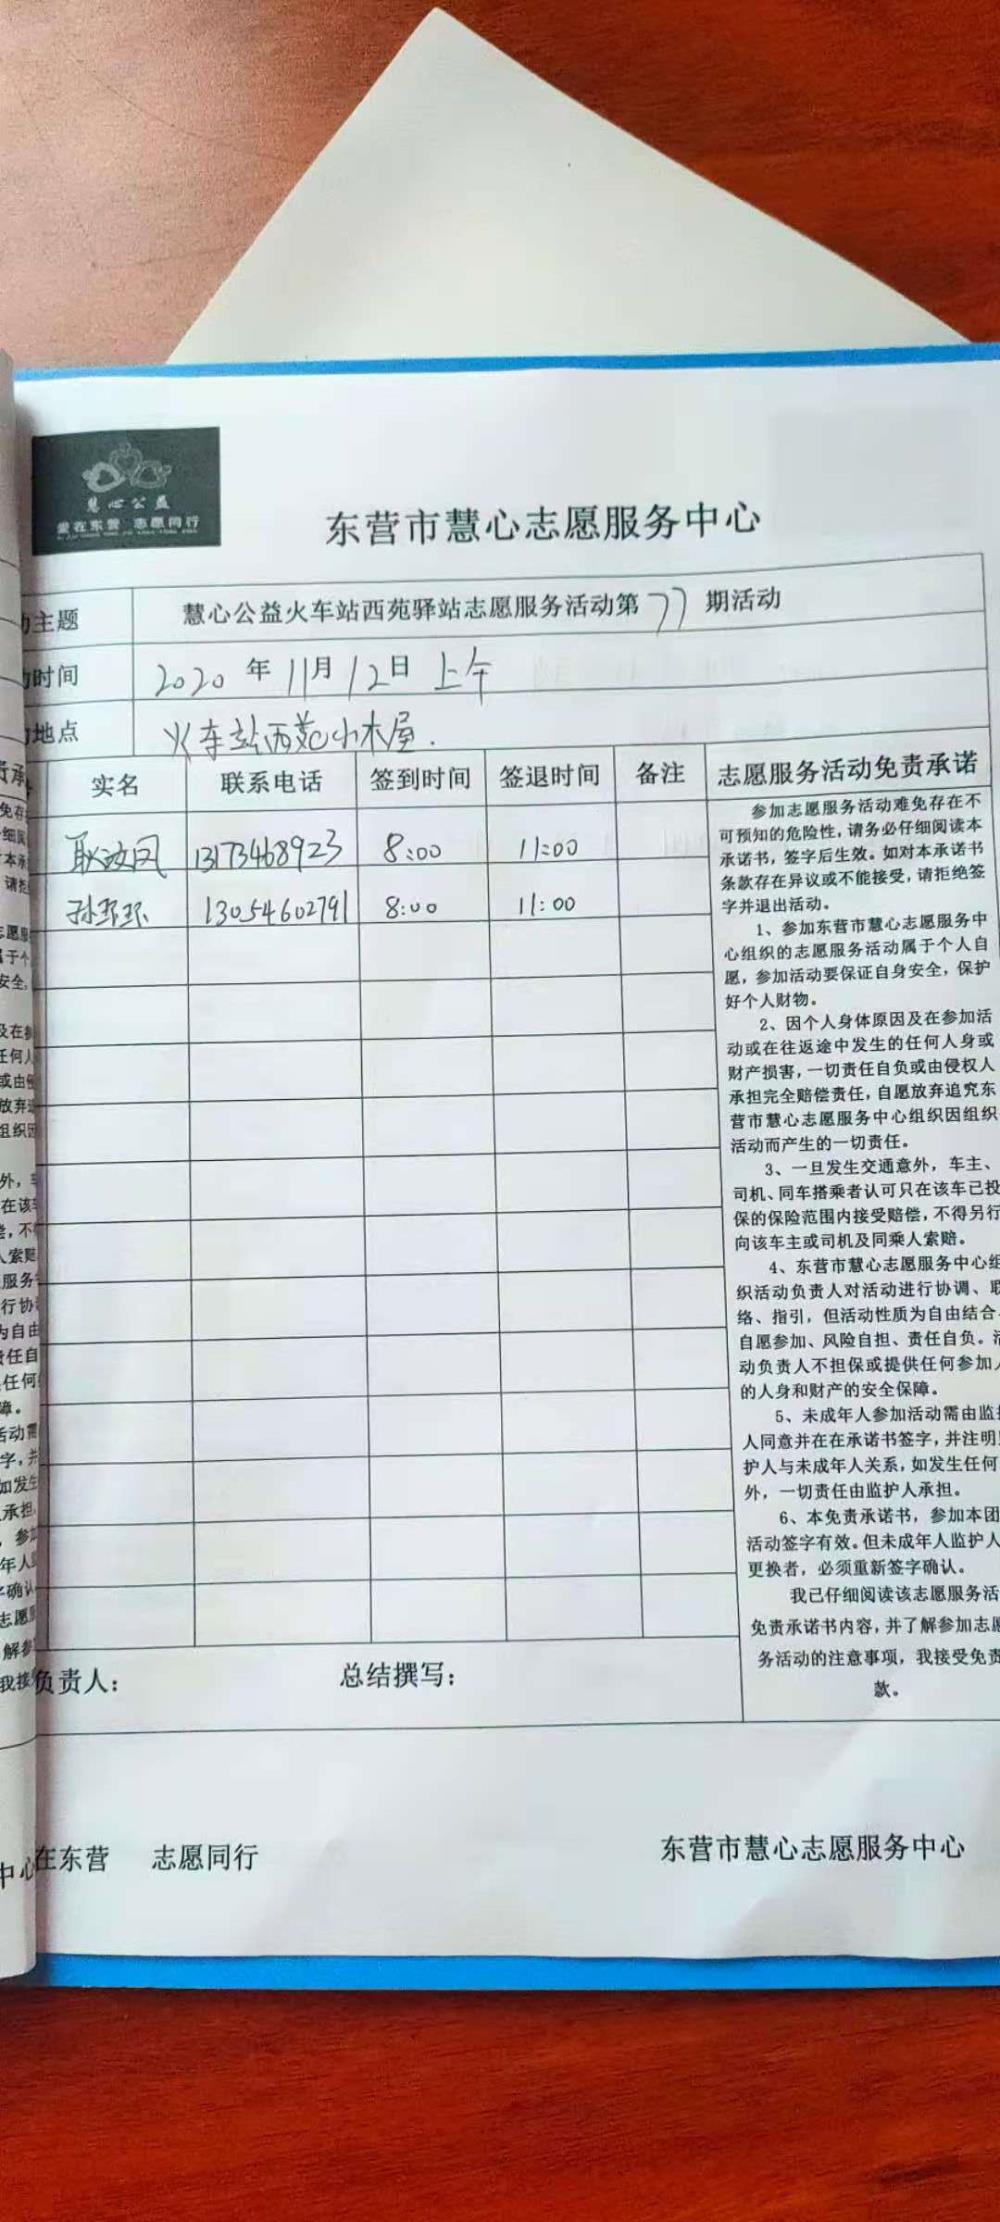 慧心公益
爱在东营 志愿同行
东营市慧心志愿服务中心
主题 慧心公益火车站西苑驿站志愿服务活动第77期活动
时间 2020年11月12日 上午
地点 火车站西苑小木屋.
实名 联系电话 签到时间 签退时间 备注 志愿服务活动免责承诺
13173468923 8:00 11:00
孙环环 13054602791 8:00 11:00
参加志愿服务活动难免存在不
可预知的危险性,请务必仔细阅读本
承诺书,签字后生效。如对本承诺书
条款存在异议或不能接受,请拒绝签
字并退出活动。
1、参加东营市慧心志愿服务中
心组织的志愿服务活动属于个人自
愿,参加活动要保证自身安全,保护
好个人财物。
2、因个人身体原因及在参加活
动或在往返途中发生的任何人身或
财产损害,一切责任自负或由侵权人
承担完全赔偿责任,自愿放弃追究东
营市慧心志愿服务中心组织因组织
活动而产生的一切责任。
3、一旦发生交通意外,车主、
司机、同车搭乘者认可只在该车已投
保的保险范围内接受赔偿,不得另行
向该车主或司机及同乘人索赔。
4、东营市慧心志愿服务中心组
织活动负责人对活动进行协调、联
络、指引,但活动性质为自由结合、
自愿参加、风险自担、责任自负。活
动负责人不担保或提供任何参加人
的人身和财产的安全保障。
5、未成年人参加活动需由监护
人同意并在在承诺书签字,并注明
护人与未成年人关系,如发生任何
外,一切责任由监护人承担。
6、本免责承诺书,参加本团
活动签字有效。但未成年人监护人
更换者,必须重新签字确认。
我已仔细阅读该志愿服务活
免责承诺书内容,并了解参加志愿
务活动的注意事项,我接受免责
款。
负责人: 总结撰写:
在东营 志愿同行 东营市慧心志愿服务中心